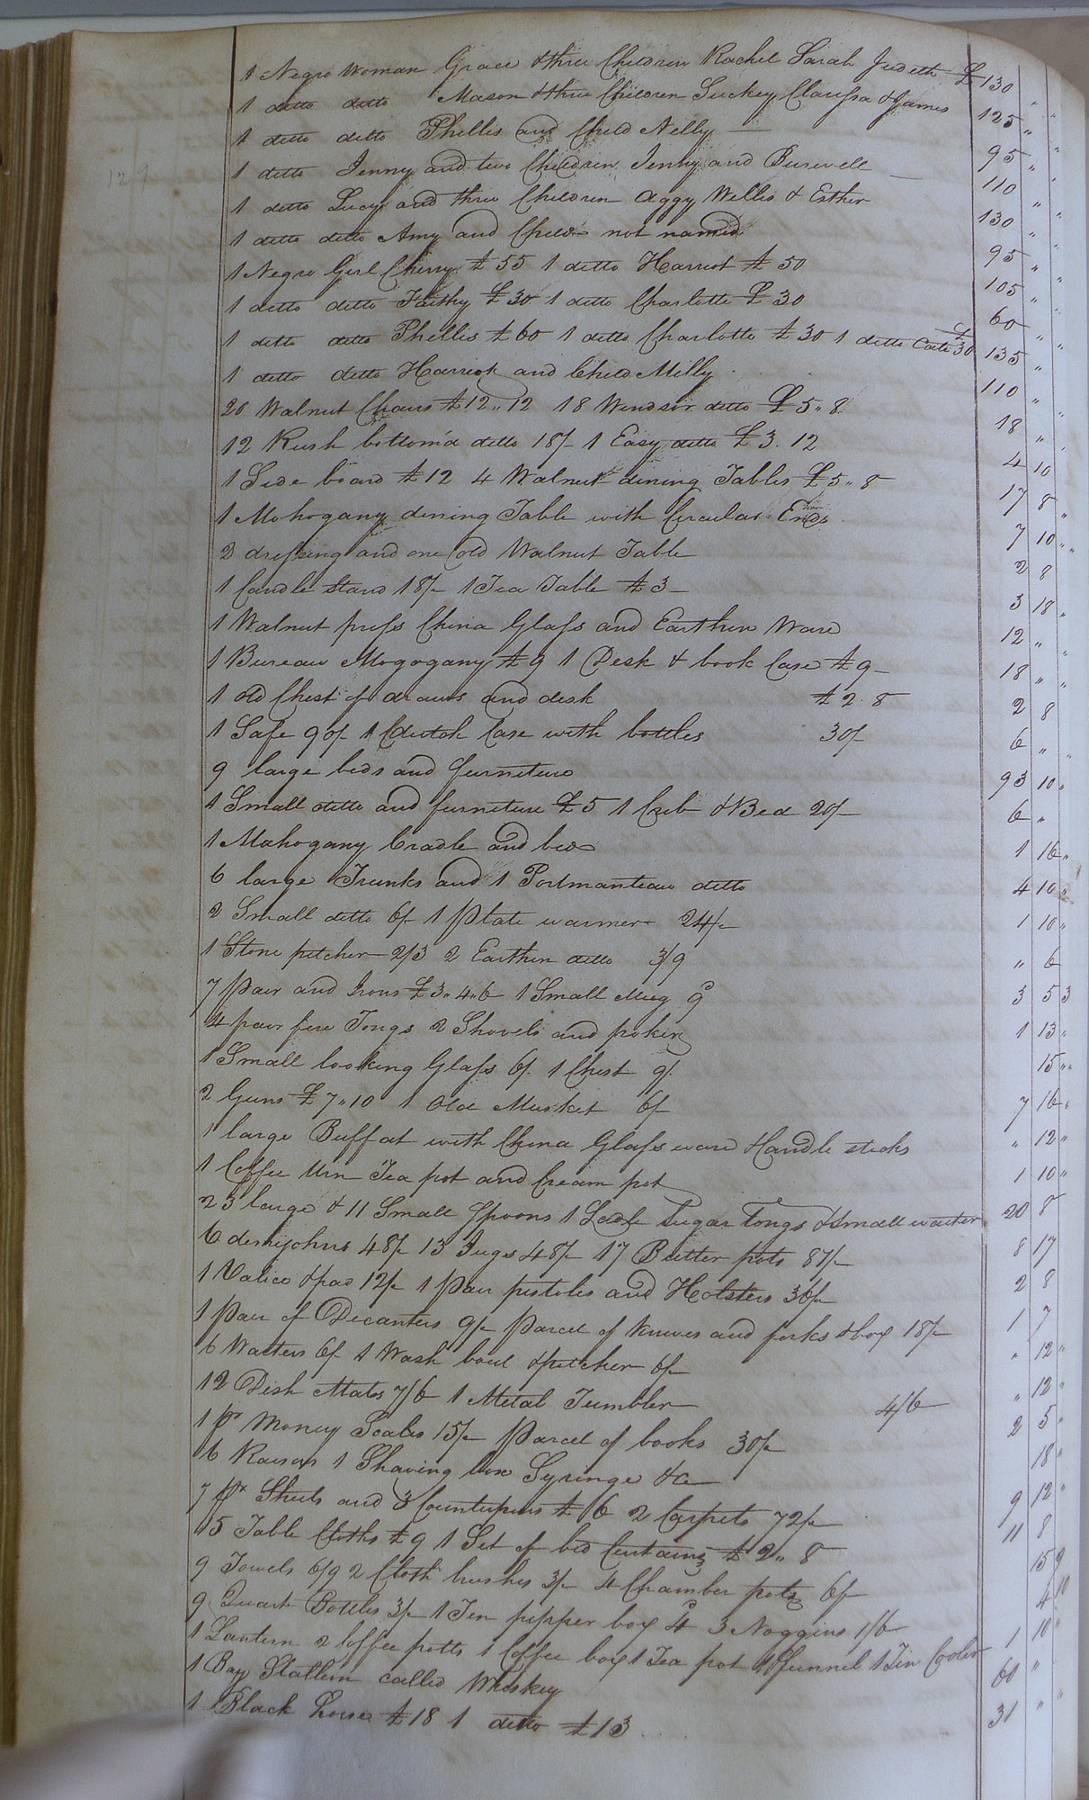 1 Negro Woman Grace & three Children Rachel Sarah Judith £ 130 " "
1 ditto ditto Mason & three Children Suckey Clarissa & James 125 " "
1 ditto ditto Phillis and Child Nelly — 95 " "
1 ditto Jenny and two Children Jenny and Burwell — 110 " "
1 ditto Lucy and three Children Aggy Willis & Esther 130 " "
1 ditto ditto Amy and Child not named 95 " "
1 Negro Girl Cherry £ 55 1 ditto Harriot £ 50 105 " "
1 ditto ditto Faithy £ 30 1 ditto Charlotte £ 30 60 " "
1 ditto ditto Phillis £ 60 1 ditto Charlotte £ 30 1 ditto Cate £30 135 " "
1 ditto ditto Harriot and Child Milly 110 " "
20 Walnut Chairs £ 12,, 12 18 Windsor ditto £ 5,, 8 18 " "
12 Rush bottom'd ditto 18/ 1 Easy ditto £ 3. 12 4 10
1 Side board £ 12 4 Walnut dining Tables £ 5,, 8 17 8 "
1 Mohogany dining Table with Circular Ends 7 10 "
2 dressing and one old Walnut Table 2 8
1 Candle stand 18/ 1 Tea Table £ 3 — 3 18 "
1 Walnut press China Glass and Earthen Ware 12 " "
1 Bureau Mogogany £ 9 1 Desk & book Case £ 9 — 18 " "
1 old Chest of draws and desk £ 2. 8 2 8
1 Safe 90/ 1 Dutch Case with bottles 30/ 6 " "
9 large beds and furniture 93 10 "
1 Small ditto and furniture £ 5 1 Crib & Bed 20/ 6 "
1 Mohogany Cradle and bed 1 16 "
6 large Trunks and 1 Portmanteau ditto 4 10 "
2 Small ditto 6/ 1 plate warmer 24/ 1 10 "
1 Stone pitcher 2/3 2 Earthen ditto 3/9 " 6
7 pair and Irons £ 3,, 4,, 6 1 Small Mug 9d 3 5 3
4 pair fire Tongs 2 Shovels and poker 1 13 "
1 Small looking Glass 6/ 1 Chest 9/ 15 "
2 Guns £ 7,, 10 1 Old Musket 6/ 7 16 "
1 large Buffat with China Glass ware & Candle sticks " 12 "
1 Coffee Urn Tea pot and Cream pot 1 10 "
23 large & 11 Small Spoons 1 Ladle Sugar Tongs & Small waiter 20 8
6 demijohns 48/ 13 Jugs 48/ 17 Butter pots 81/ 8 17
1 Valice & pad 12/ 1 Pair pistoles and Holsters 36/ 2 8
1 Pair of Decanters 9/ Parcel of Knives and forks & box 18/ 1 7
6 Waiters 6/ 1 Wash bowl & pitcher 6/ " 12 "
12 Dish Mats 7/6 1 Metal Tumbler 4/6 " 12 "
1 pr Money Scales 15/ Parcel of books 30/ 2 5 "
6 Raisors 1 Shaving box Syringe &c 18 "
7 pr Sheets and 3 Counterpins £ 6 2 Carpets 72/ 9 12 "
15 Table Cloths £ 9 1 Set of bed Curtains £ 2,, 8 11 8
9 Towels 6/9 2 Cloth brushes 3/ 4 Chamber pots 6/ 15 9
9 Quart Bottles 3/ 1 Tin pepper box 4d 3 Noggins 1/6 4 10
1 Lantern 2 Coffee potts 1 Coffee box 1 Tea pot 1 funnel 1 Tin Cooler 1 10 "
1 Bay Stallion called Whiskey 60 "
1 Black horse £ 18 1 ditto £ 13 31 " "